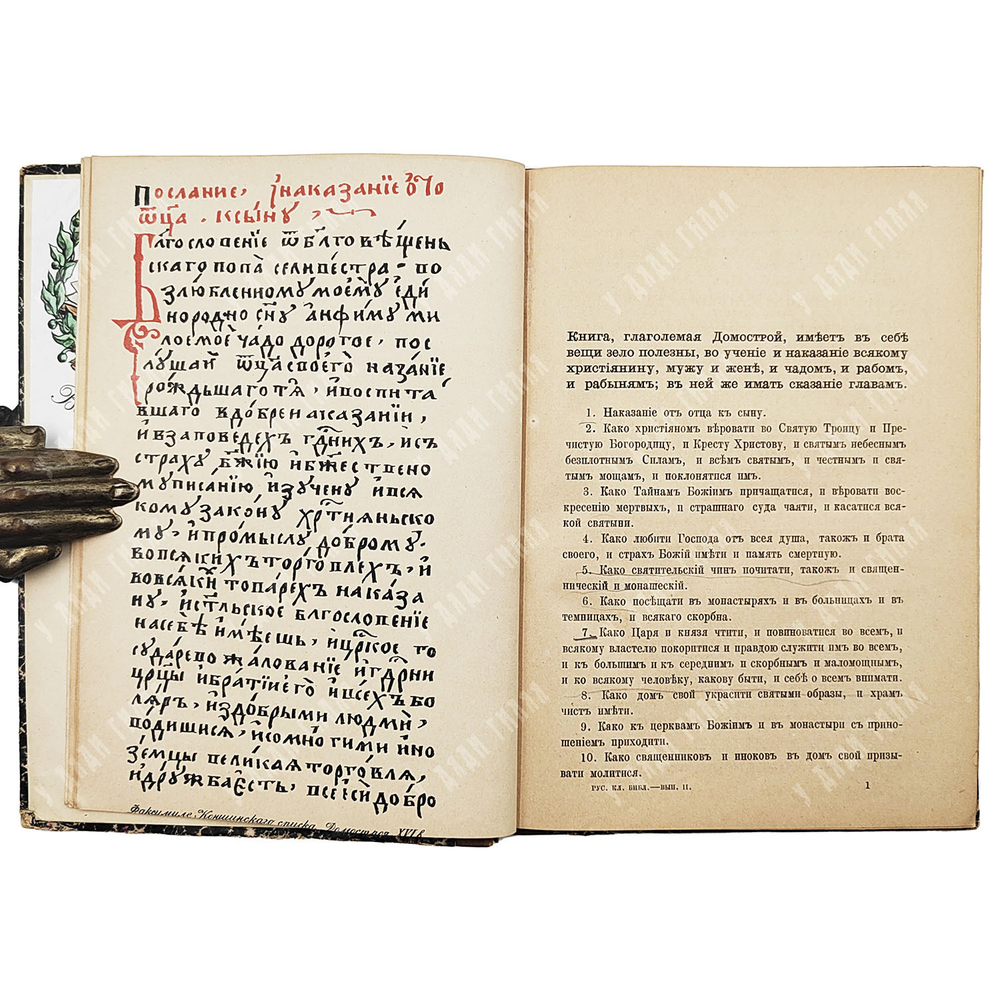 Послание, и наказанїе ѿ
ѿца . ксы́ну ,
Благословенїе ѿ блговѣщень
скаго попа селивестра . во
злюбленному моемꙋ еди
нородно снꙋ анфимꙋ ми
лоемоѐ ча́до дорогое, пос
лꙋшай ѿца своего наказанїе
рождьшаго тя, и воспита
вшаго в добре наказании,
и в заповедех гднихъ, и съ
страхꙋ бжїю и бжествено
мꙋ писанию и зꙋченꙋ и вся
комꙋ законꙋ хртияньско
мꙋ, и промыслꙋ добромꙋ.
во всяких торговлех, и
во всяки товарех наказа
нꙋ, и стльское блгословение
на себѣ имѣешь, и црское го
сꙋдарево жалование и гдрни
црцы и братии его и всех бо
ляръ, и з добрыми людми,
водишися, и со многими ино
земцы великая торговля,
и дрꙋжба есть, всеси добро
Факсимиле Коншинскаго списка Домостроя XVI в.
Книга, глаголемая Домострой, имѣетъ въ себѣ
вещи зело полезны, во ученіе и наказаніе всякому
христіянину, мужу и женѣ, и чадомъ, и рабомъ,
и рабынямъ; въ ней же имать сказаніе главамъ.
1. Наказаніе отъ отца къ сыну.
2. Како христіяномъ вѣровати во Святую Троицу и Пре-
чистую Богородицу, и Кресту Христову, и святымъ небеснымъ
безплотнымъ Силамъ, и всѣмъ святымъ, и честнымъ и свя-
тымъ мощамъ, и поклонятися имъ.
3. Како Тайнамъ Божіимъ причащатися, и вѣровати вос-
кресенію мертвыхъ, и страшнаго суда чаяти, и касатися вся-
кой святыни.
4. Како любити Господа отъ всея душа, такожъ и брата
своего, и страхъ Божій имѣти и память смертную.
5. Како святительскій чинъ почитати, такожъ и священ-
ническій и монашескій.
6. Како посѣщати въ монастыряхъ и въ больницахъ и въ
темницахъ, и всякаго скорбна.
7. Како Царя и князя чтити, и повиноватися во всемъ, и
всякому властелю покоритися и правдою служити имъ во всемъ,
и къ большимъ и къ середнимъ и скорбнымъ и маломощнымъ,
и ко всякому человѣку, какову быти, и себѣ о всемъ внимати.
8. Како домъ свой украсити святыми образы, и храмъ
чистъ имѣти.
9. Како къ церквамъ Божіимъ и въ монастыри съ прино-
шеніемъ приходити.
10. Како священниковъ и иноковъ въ домъ свой призы-
вати молитися.
РУС. КЛ. БИБЛ.—ВЫП. II. 1
У ДЯДИ ГИЛЯЯ